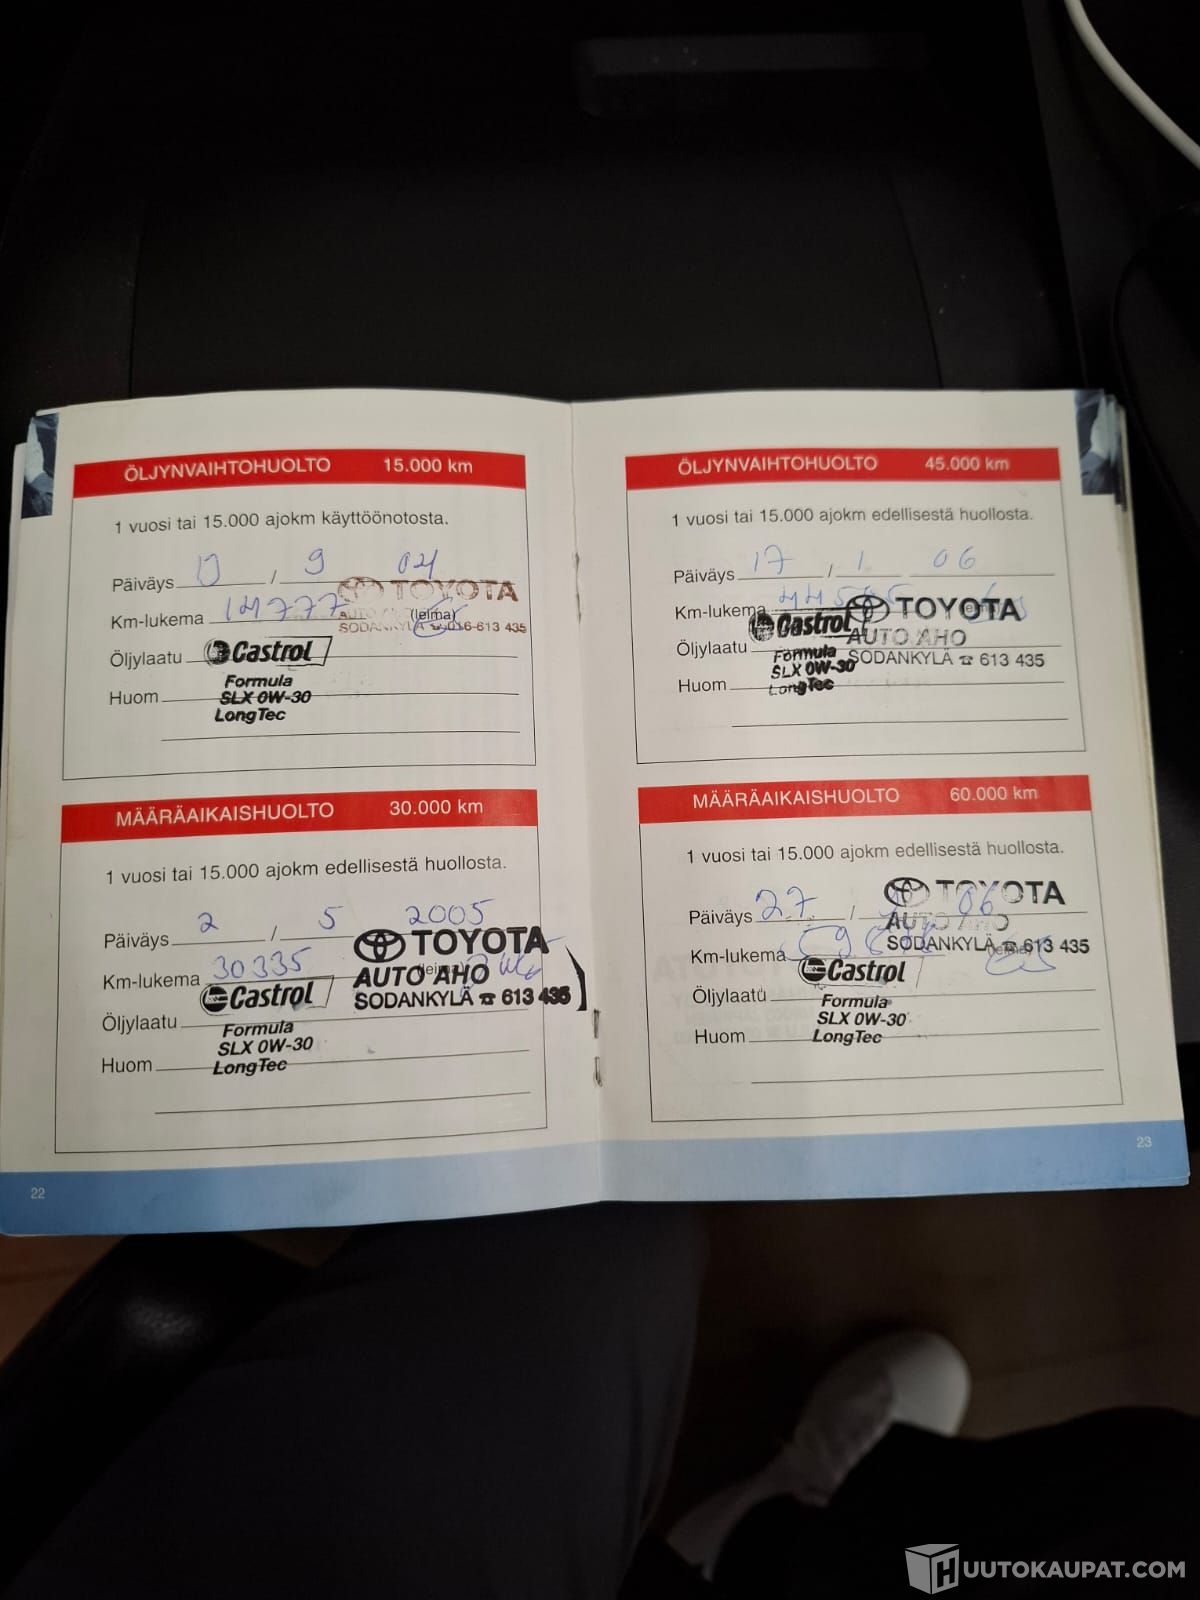 ÖLJYNVAIHTOHUOLTO 15.000 km
1 vuosi tai 15.000 ajokm käyttöönotosta.
Päiväys / 9 04
Km-lukema 14777 (leima)
TOYOTA
AUTO
SODANKYLÄ ☎ 016-613 435
Öljylaatu Castrol
Huom Formula
SLX 0W-30
LongTec
MÄÄRÄAIKAISHUOLTO 30.000 km
1 vuosi tai 15.000 ajokm edellisestä huollosta.
Päiväys 2 / 5 2005
Km-lukema 30335 (leima)
TOYOTA
AUTO AHO
SODANKYLÄ ☎ 613 435
Öljylaatu Castrol
Huom Formula
SLX 0W-30
LongTec
22
ÖLJYNVAIHTOHUOLTO 45.000 km
1 vuosi tai 15.000 ajokm edellisestä huollosta.
Päiväys 17 / 1 06
Km-lukema
TOYOTA
AUTO AHO
SODANKYLÄ ☎ 613 435
Öljylaatu Castrol
Huom Formula
SLX 0W-30
LongTec
MÄÄRÄAIKAISHUOLTO 60.000 km
1 vuosi tai 15.000 ajokm edellisestä huollosta.
Päiväys 27 / 06
Km-lukema
TOYOTA
AUTO AHO
SODANKYLÄ ☎ 613 435
Öljylaatu Castrol
Huom Formula
SLX 0W-30
LongTec
23
HUUTOKAUPAT.COM